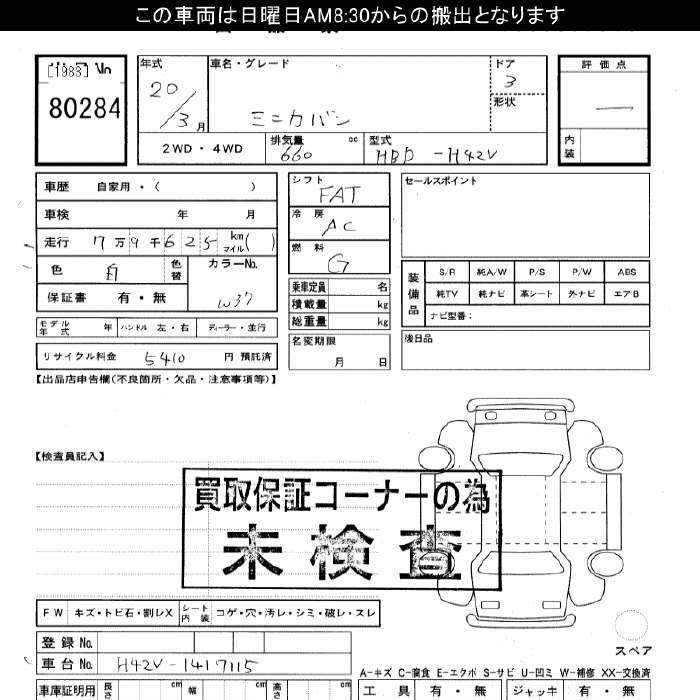 この車両は日曜日AM8:30からの搬出となります
[1983] Vn
80284
年式 車名・グレード ドア 評価点
20/3月 ミニカバン 3 —
形状
2WD・4WD 排気量 660 cc 型式 HBD-H42V 内装
車歴 自家用・( )
車検 年 月
走行 7万9千625 km マイル( )
色 白 色替 カラーNo. W37
保証書 有・無
モデル年式 年 ハンドル 左・右 ディーラー・並行
リサイクル料金 5410 円 預託済
シフト FAT
冷房 AC
燃料 G
乗車定員 名
積載量 kg
総重量 kg
名変期限 月 日
セールスポイント
装備品 S/R 純A/W P/S P/W ABS
純TV 純ナビ 革シート 外ナビ エアB
ナビ型番:
後日品
【出品店申告欄(不良箇所・欠品・注意事項等)】
【検査員記入】
買取保証コーナーの為
未検査
FW キズ・トビ石・割レX シート内装 コゲ・穴・汚レ・シミ・破レ・スレ
登録No.
車台No. H42V-1417115
スペア
A-キズ C-腐食 E-エクボ S-サビ U-凹ミ W-補修 XX-交換済
車庫証明用 長さ cm 幅 cm 高さ cm 工具 有・無 ジャッキ 有・無